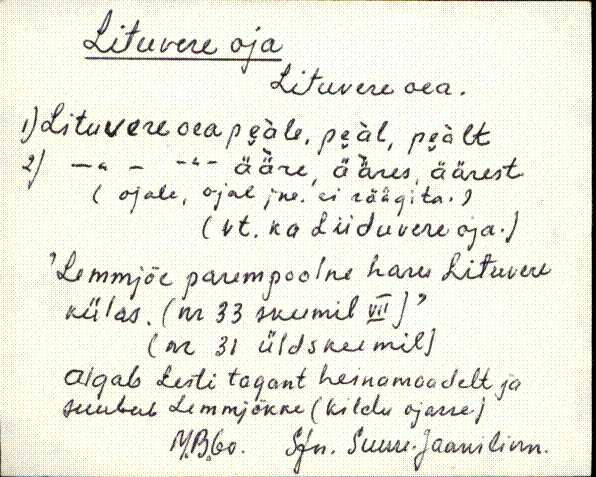 Lituvere oja
Lituvere oea.
1) Lituvere oea pe̬àle, pe̬àl, pe̬àlt
2) —"— —"— äärè, ääres, äärest
(ojale, ojal jne. ei räägita.)
(vt. ka Liiduvere oja.)
'Lemmjõe parempoolne haru Lituvere
külas. (nr 33 skeemil VII)'
(nr 31 üldskeemil)
Algab Eesti tagant heinamaadelt ja
suubub Lemmjõkke (Kildu ojasse)
M.B. 60. Sjn. Suure-Jaani linn.